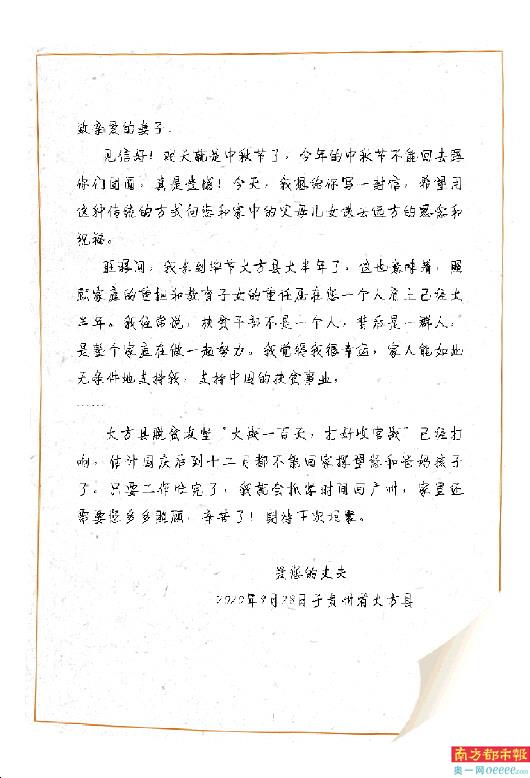 致亲爱的妻子:
见信好！现天就是中秋节了，今年的中秋节不能回去跟
你们团圆，真是遗憾！今天，我想给你写一封信，希望用
这种传统的方式向您和家中的父母儿女送去远方的思念和
祝福。
眨眼间，我来到毕节大方县大半年了，这也意味着，照
顾家庭的重担和教育子女的重任压在您一个人肩上已经大
半年。我经常说，扶贫干部不是一个人，背后是一群人，
是整个家庭在做一起努力。我觉得我很幸运，家人能如此
无条件地支持我，支持中国的扶贫事业。
……
大方县脱贫攻坚“大战一百天，打好收官战”已经打
响，估计国庆后到十二月都不能回家探望您和爸妈孩子
了。只要工作忙完了，我就会抓紧时间回广州，家里还
需要您多多照顾，辛苦了！期待下次相聚。
爱您的丈夫
2020年9月28日于贵州省大方县
南方都市报
奥一网oeeee.com